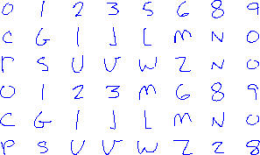 0 1 2 3 5 6 8 9
C G I J L M N O
r S U V W Z N O
0 1 2 3 M 6 8 9
C G I J L M N O
P S U V W Z 2 8